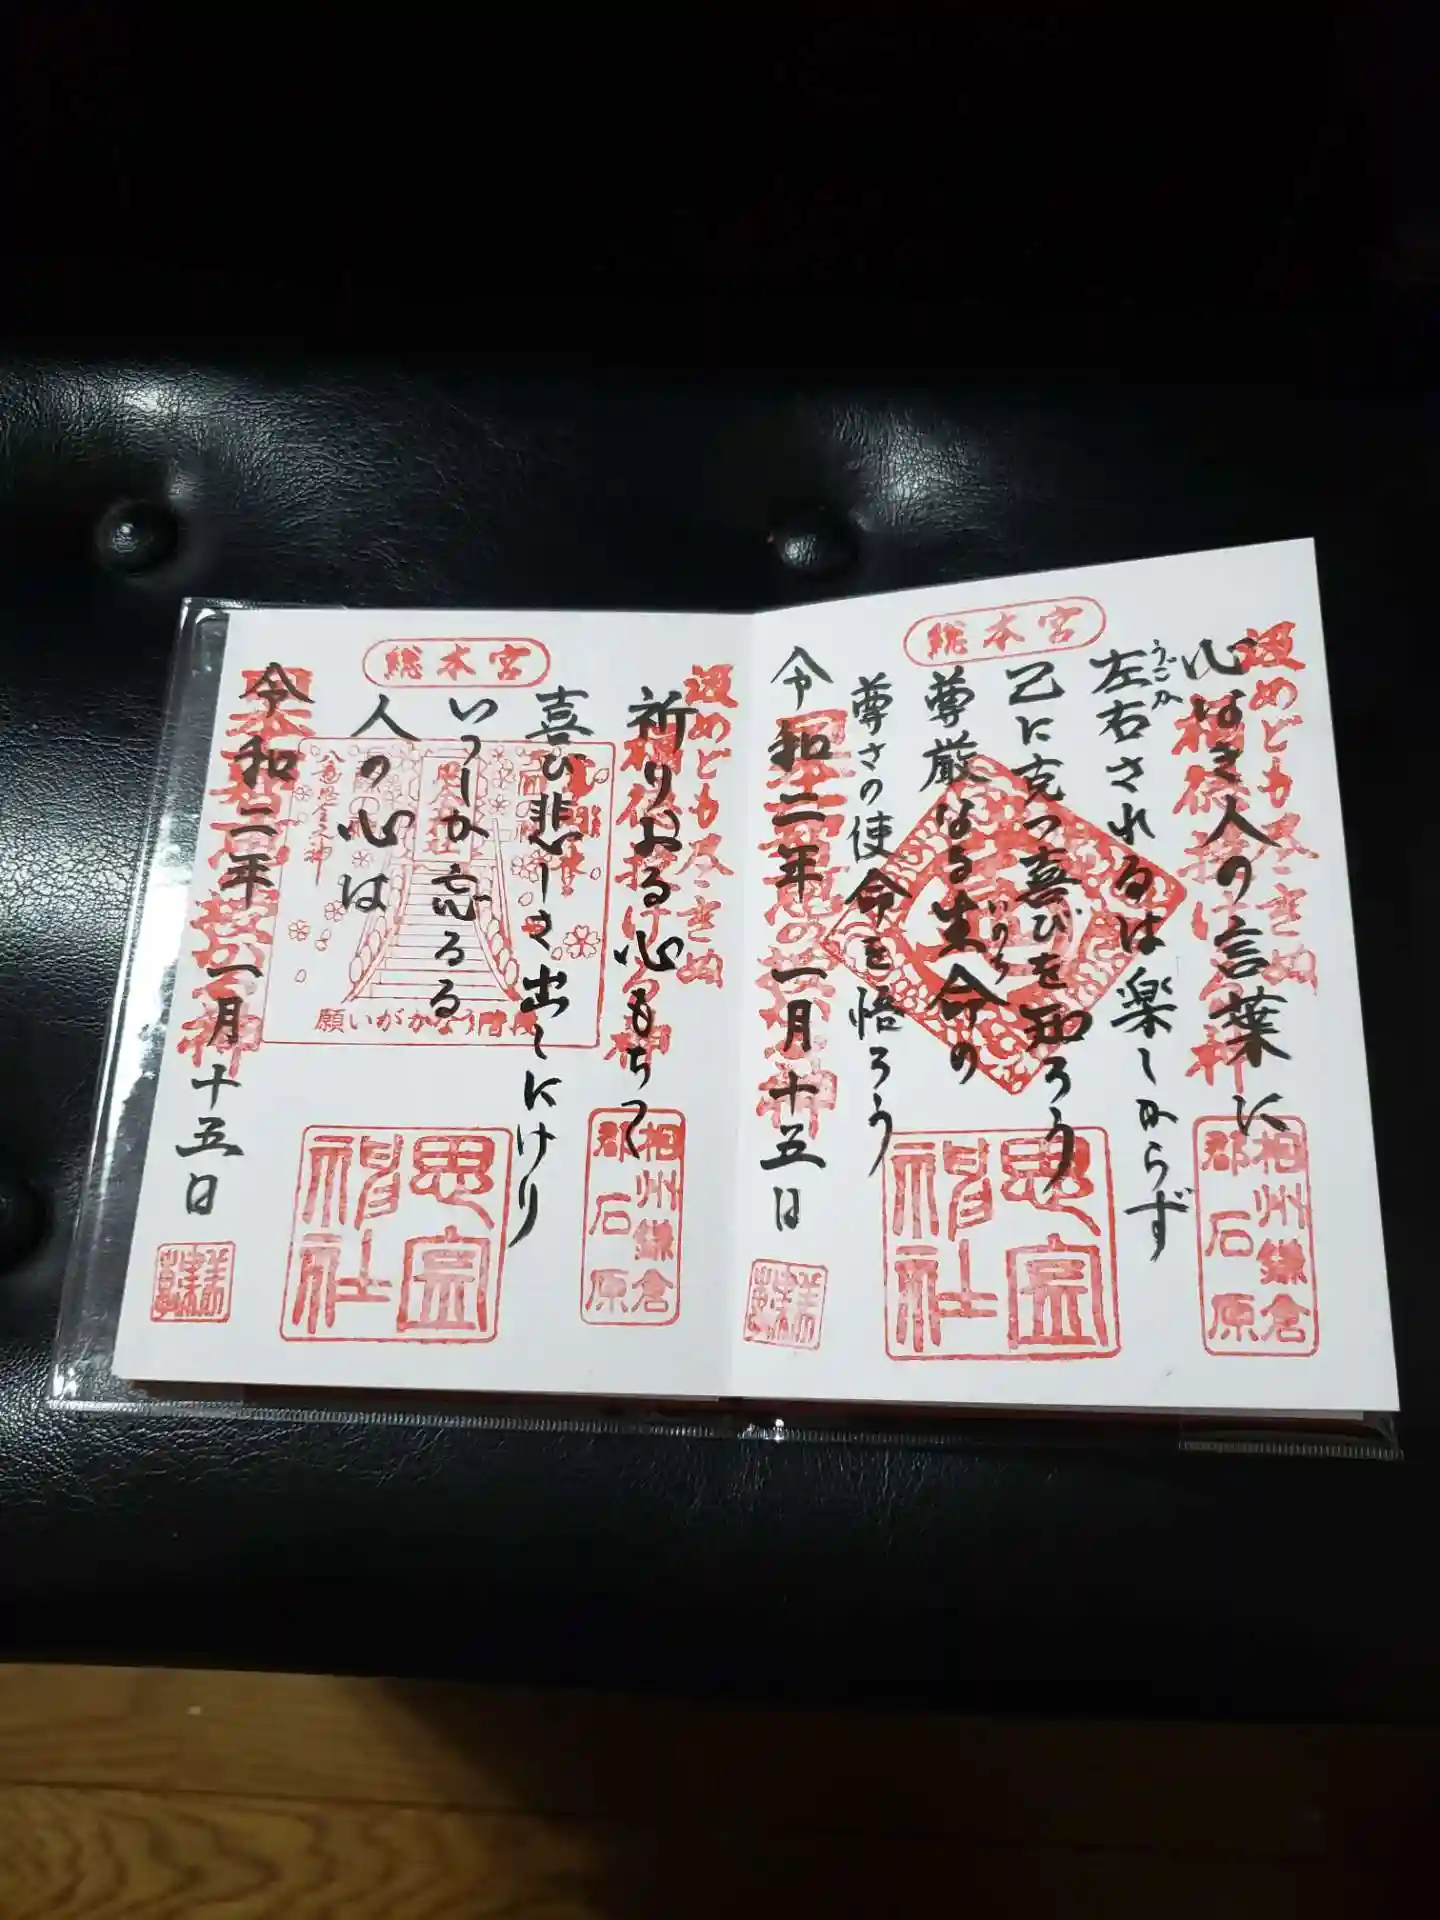 総本宮
汲めども尽きぬ
心なき人の言葉に
左右されるは楽しからず
うごか
己に克つ喜びを知ろう
尊厳なる生命の
いのち
尊さの使命を悟ろう
令和二年一月十五日
相州鎌倉
郡石原
思金
神社
総本宮
汲めども尽きぬ
祈りおる心もちて
喜び悲しき出しにけり
いつしか忘るる
人の心は
令和二年一月十五日
願いがかなう階段
相州鎌倉
郡石原
思金
神社